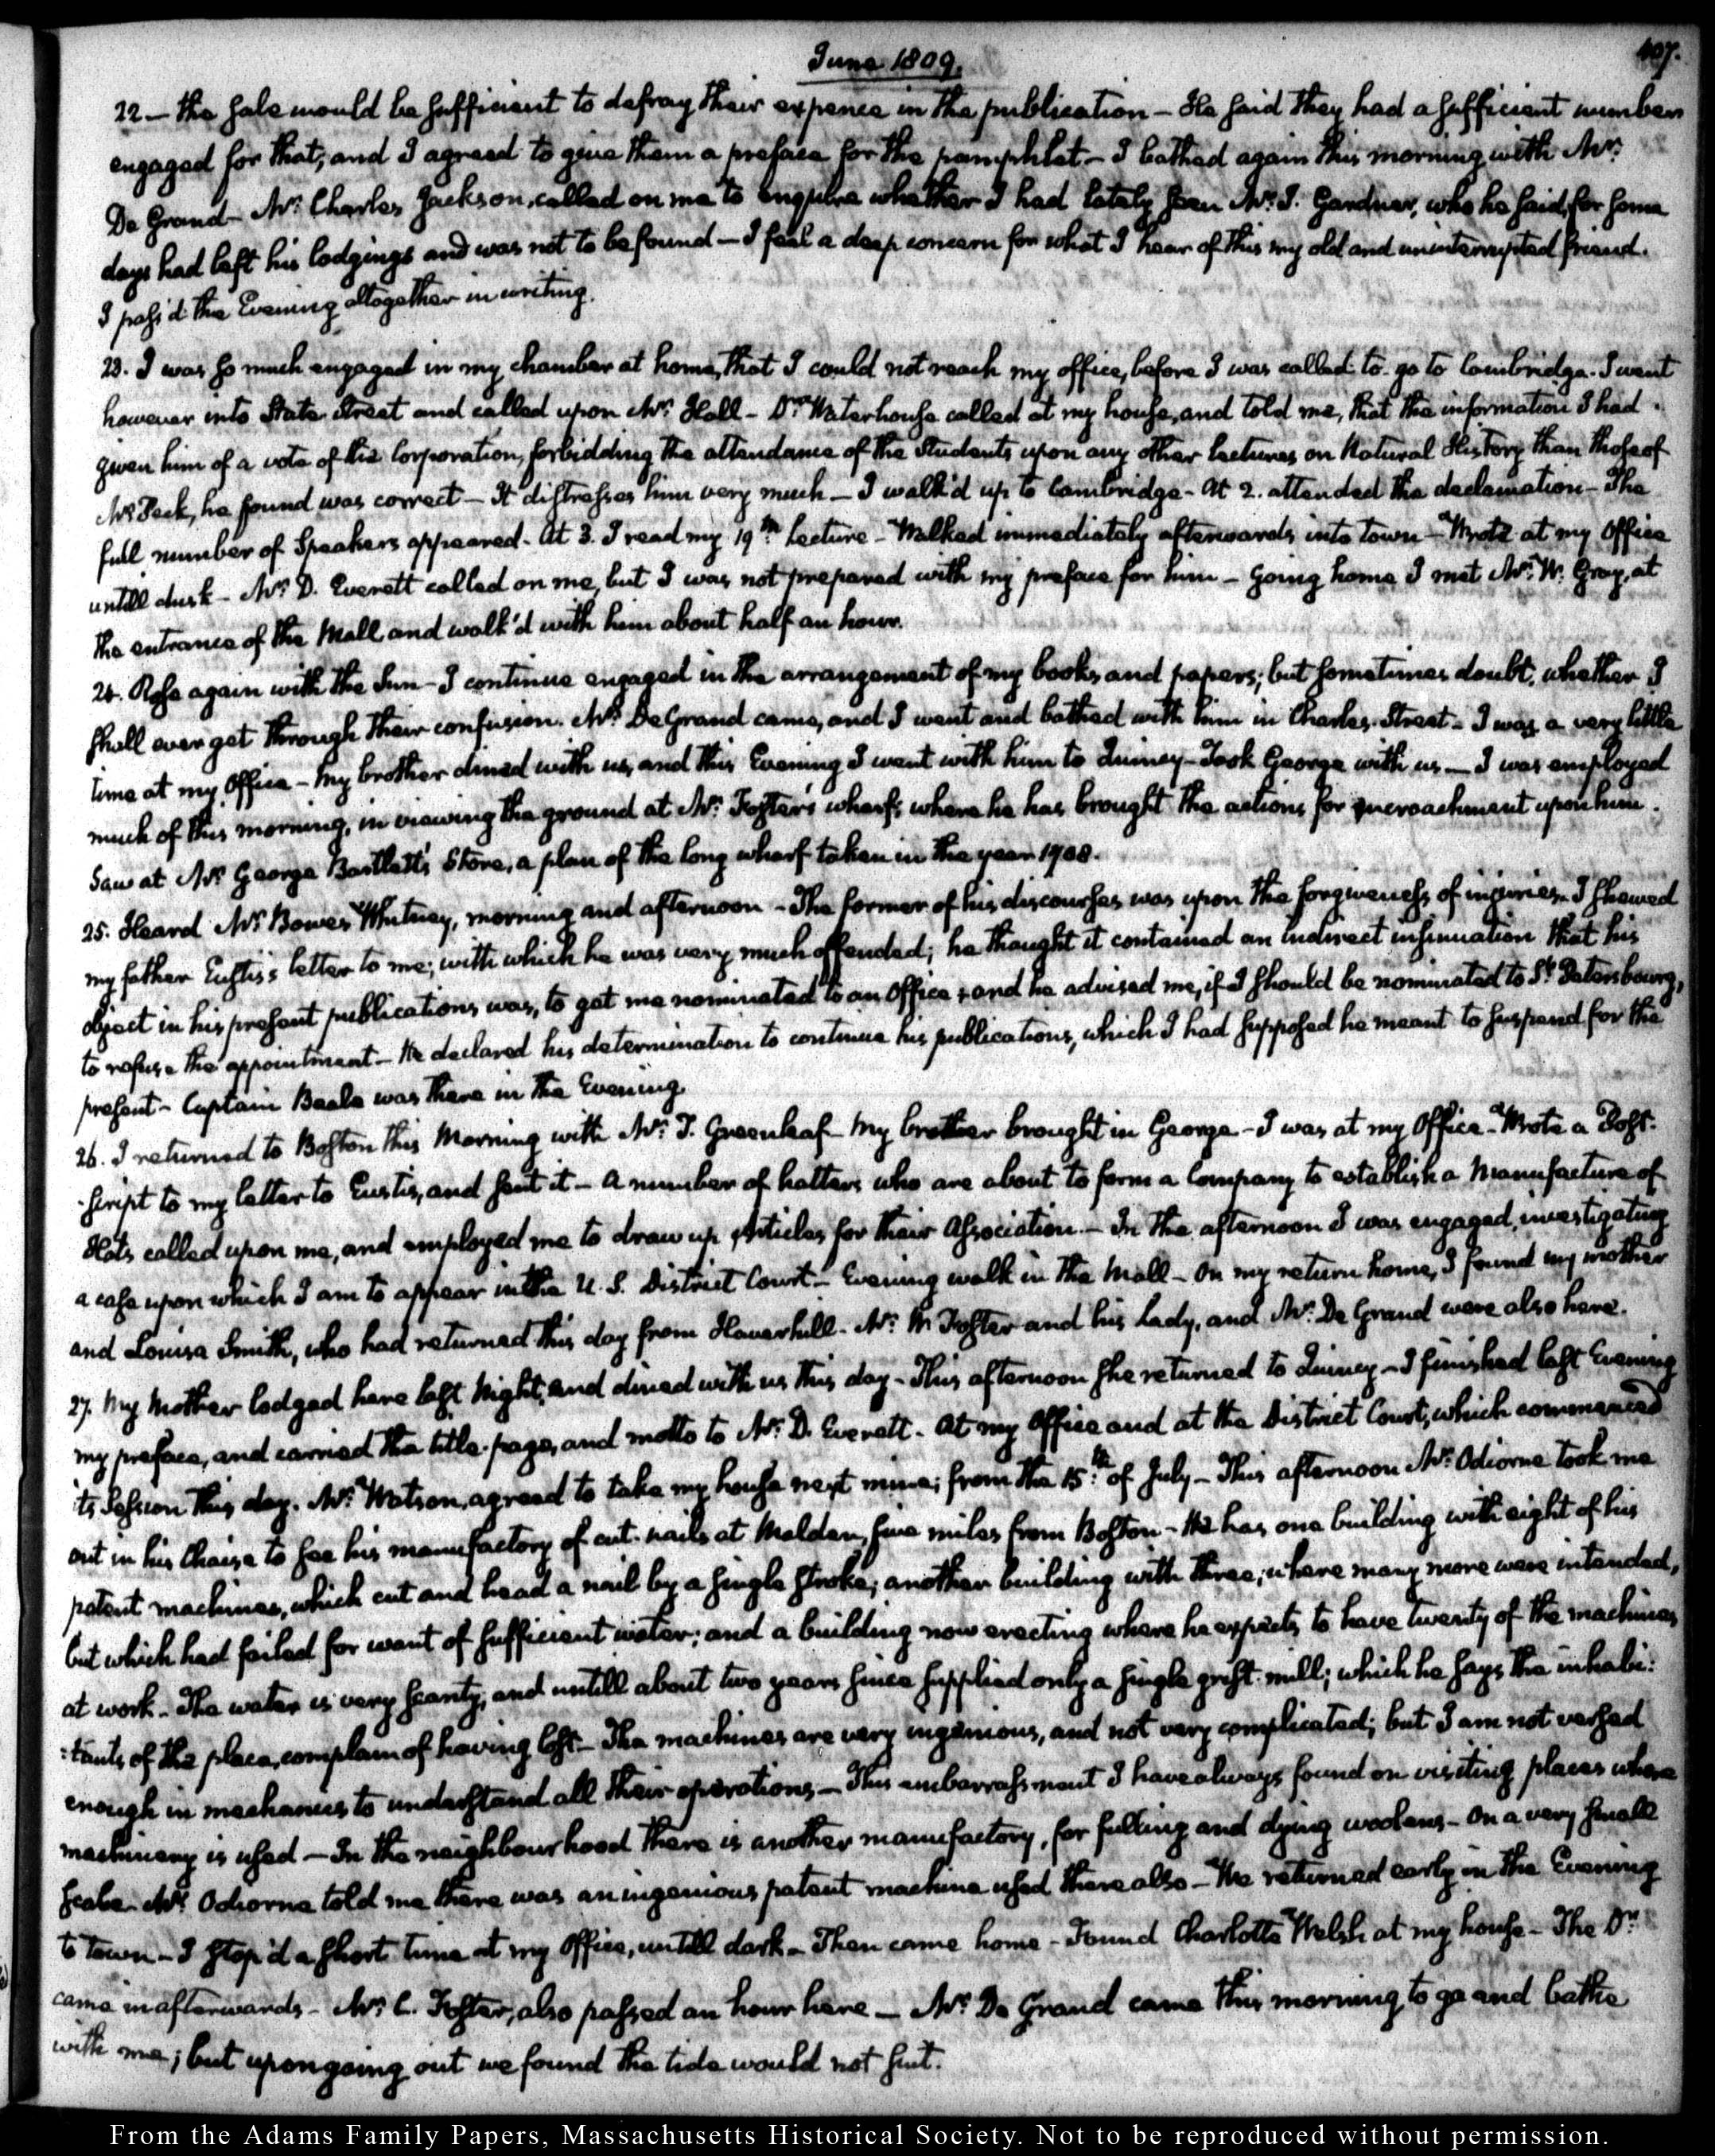 June 1809.
407.
22 — the sale would be sufficient to defray their expence in the publication — He said they had a sufficient number
engaged for that, and I agreed to give them a preface for the pamphlet — I bathed again this morning with Mr:
De Grand — Mr: Charles Jackson, called on me to enquire whether I had lately seen Mr: J. Gardner, who he said, for some
days had left his lodgings and was not to be found — I feel a deep concern for what I hear of this my old and uninterrupted friend.
I pass'd the Evening altogether in writing.
23. I was so much engaged in my chamber at home, that I could not reach my office, before I was called to go to Cambridge. I went
however into State Street and called upon Mr: Hall — Dr: Waterhouse called at my house, and told me, that the information I had
given him of a vote of the Corporation, forbidding the attendance of the Students upon any other Lectures on Natural History than those of
Mr: Peck, he found was correct — It distresses him very much — I walk'd up to Cambridge — At 2. attended the declamation — The
full number of Speakers appeared. At 3. I read my 19th: Lecture — Walked immediately afterwards into town — Wrote at my Office
untill dusk — Mr: D. Everett called on me, but I was not prepared with my preface for him — Going home I met Mr: W. Gray, at
the entrance of the Mall and walk'd with him about half an hour.
24. Rose again with the Sun — I continue engaged in the arrangement of my books and papers; but sometimes doubt, whether I
shall ever get through their confusion. Mr: De Grand came, and I went and bathed with him in Charles Street — I was a very little
time at my Office — My brother dined with us, and this Evening I went with him to Quincy — Took George with us — I was employed
much of this morning, in viewing the ground at Mr: Foster's wharf, where he has brought the actions for encroachment upon him.
Saw at Mr: George Bartlett's Store, a plan of the long wharf taken in the year 1708.
25. Heard Mr: Bowes Whitney, morning and afternoon — The former of his discourses was upon the forgiveness of injuries. I shewed
my father Eustis's letter to me; with which he was very much offended; he thought it contained an indirect insinuation that his
object in his present publications was, to get me nominated to an Office; and he advised me, if I should be nominated to St: Petersbourg,
to refuse the appointment — He declared his determination to continue his publications, which I had supposed he meant to suspend for the
present — Captain Beale was there in the Evening.
26. I returned to Boston this Morning with Mr: T. Greenleaf — My brother brought in George — I was at my Office — Wrote a Post-
-script to my letter to Eustis, and sent it — A number of hatters who are about to form a Company to establish a Manufacture of
Hats called upon me, and employed me to draw up Articles for their Association — In the afternoon I was engaged, investigating
a case upon which I am to appear in the U. S. District Court — Evening walk in the Mall — On my return home, I found my mother
and Louisa Smith, who had returned this day from Haverhill. Mr: W. Foster and his Lady, and Mr: De Grand were also here.
27. My Mother lodged here last Night, and dined with us this day — This afternoon she returned to Quincy — I finished last Evening
my preface, and carried the title-page, and motto to Mr: D. Everett. At my Office and at the District Court, which commenced
its Session this day. Mr: Watson, agreed to take my house next mine; from the 15th: of July — This afternoon Mr: Odiorne took me
out in his Chaise to see his manufactory of cut-nails at Malden, five miles from Boston — He has one building with eight of his
patent machines, which cut and head a nail by a single stroke; another building with three; where many more were intended,
but which had failed for want of sufficient water; and a building now erecting where he expects to have twenty of the machines
at work — The water is very scanty, and untill about two years since supplied only a single grist-mill; which he says the inhabi:
:tants of the place, complain of having lost — The machines are very ingenious, and not very complicated; but I am not versed
enough in mechanics to understand all their operations — This embarrassment I have always found on visiting places where
machinery is used — In the neighbourhood there is another manufactory, for fulling and dying woolens — On a very small
scale Mr: Odiorne told me there was an ingenious patent machine used there also — We returned early in the Evening
to town — I stop'd a short time at my Office, untill dark — Then came home — Found Charlotte Welsh at my house — The Dr:
came in afterwards — Mr: C. Foster, also passed an hour here — Mr: De Grand came this morning to go and bathe
with me; but upon going out we found the tide would not suit.
From the Adams Family Papers, Massachusetts Historical Society. Not to be reproduced without permission.